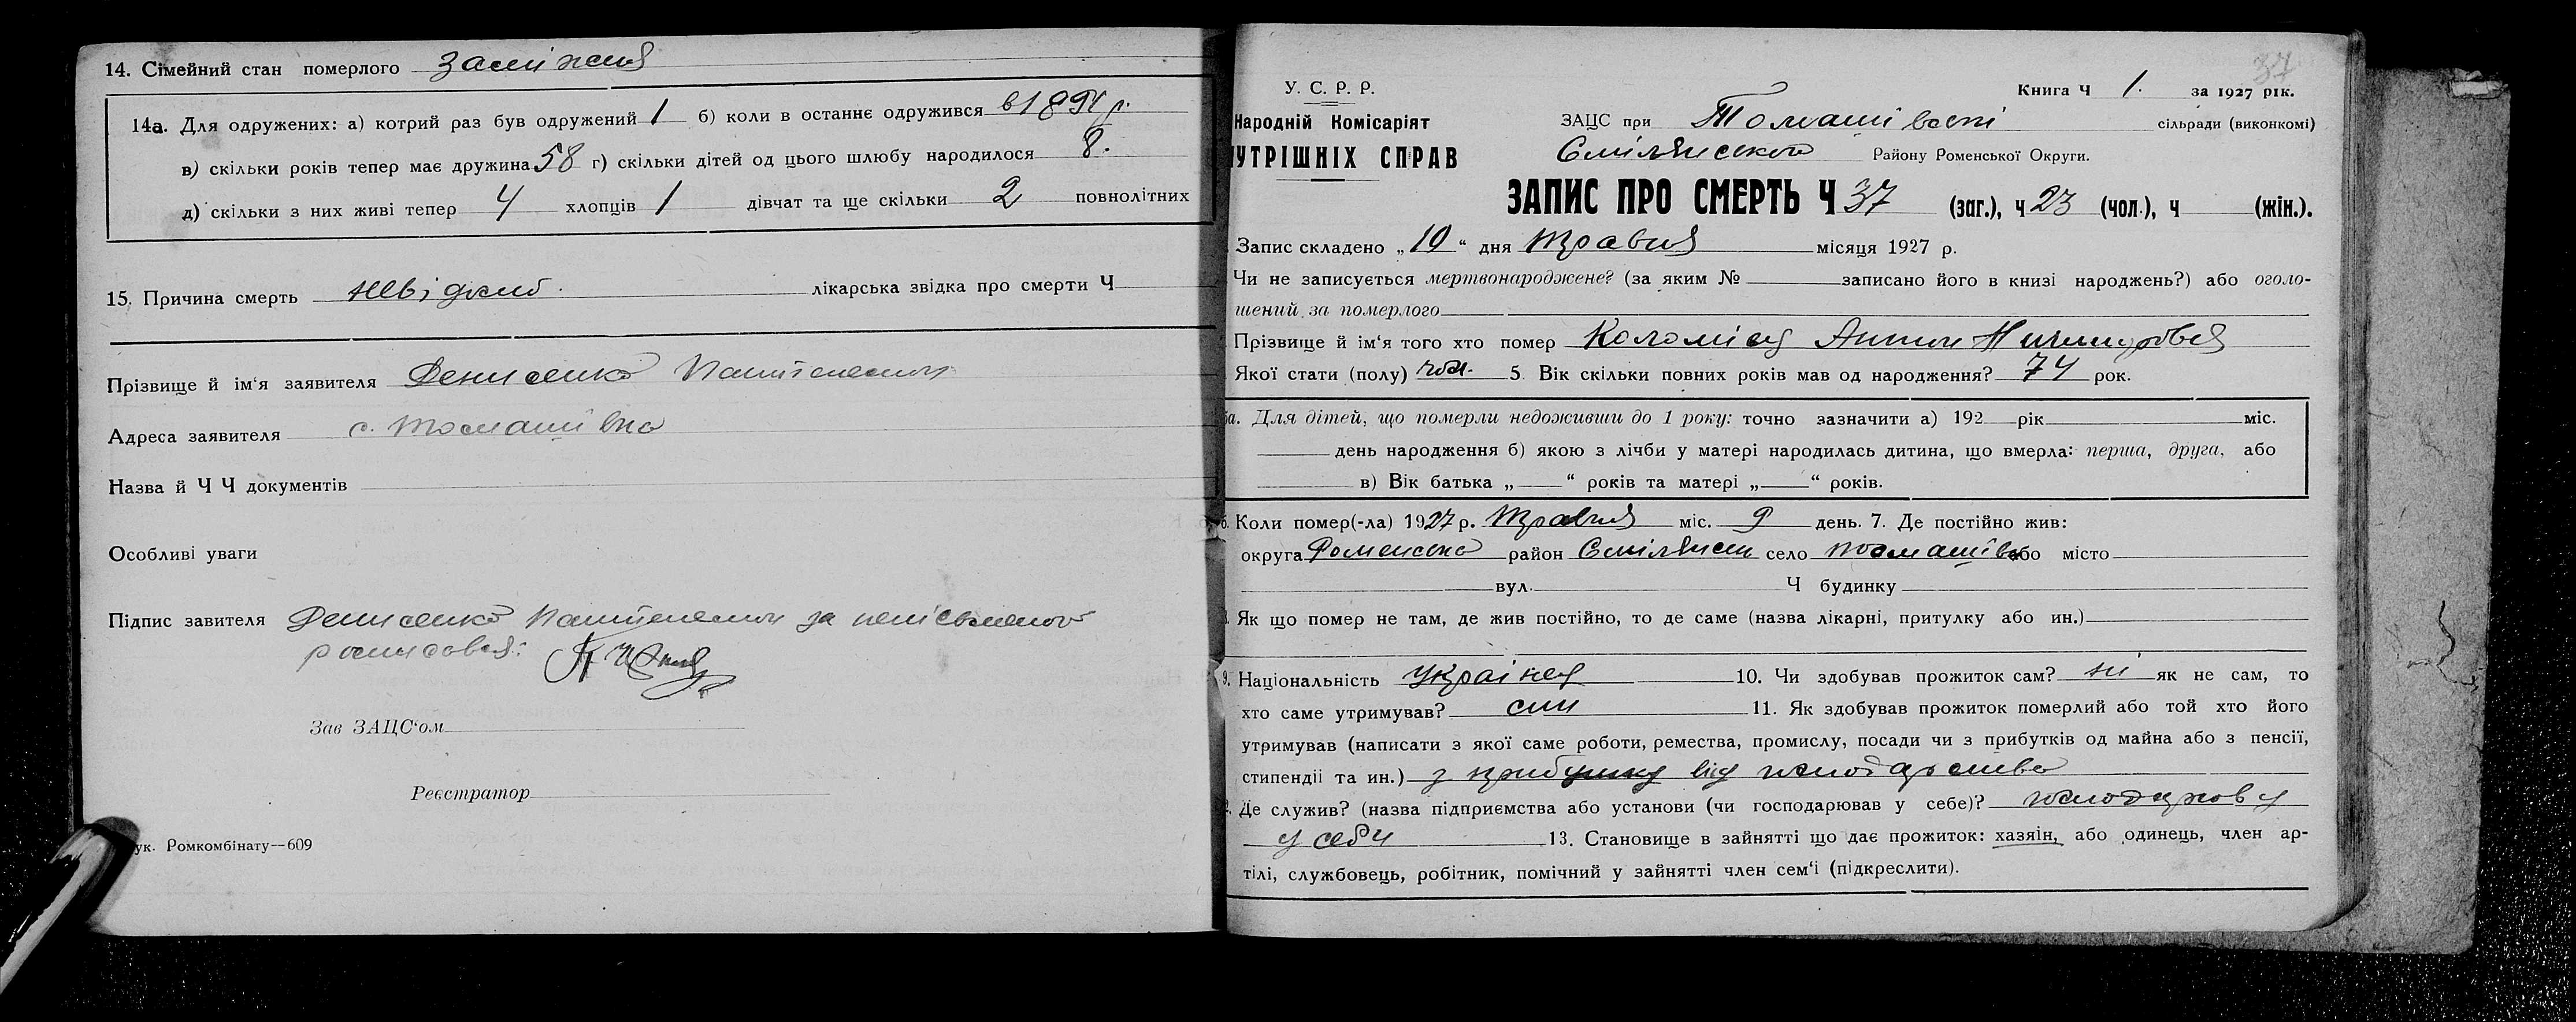 14. Сімейний стан померлого заміжня
14а. Для одружених: а) котрий раз був одружений 1 б) коли в останнє одружився в 189 р.
в) скільки років тепер має дружина 58 г) скільки дітей од цього шлюбу народилося 8.
д) скільки з них живі тепер 4 хлопців 1 дівчат та ще скільки 2 повнолітних
15. Причина смерть невідома. лікарська звідка про смерти Ч
Прізвище й ім'я заявителя Денисенко
Адреса заявителя с. Томашівка
Назва й Ч Ч документів
Особливі уваги
Підпис завителя Денисенко за неписьменого
росписався:
Зав ЗАЦС'ом
Реєстратор
ук. Ромкомбінату—609
37
У. С. Р. Р.
Книга Ч 1. за 1927 рік.
Народній Комісаріят
ЗАЦС при Томашівські сільради (виконкомі)
УТРІШНІХ СПРАВ
Смілянського Району Роменської Округи.
ЗАПИС ПРО СМЕРТЬ Ч 37 (заг.), ч 23 (чол.), ч (жін.).
Запис складено „10“ дня Травня місяця 1927 р.
Чи не записується мертвонароджене? (за яким № записано його в книзі народжень?) або оголо-
шений за померлого
Прізвище й ім'я того хто помер Коломієц Антин
Якої стати (полу) чол. 5. Вік скільки повних років мав од народження? 74 рок.
5а. Для дітей, що померли недоживши до 1 року: точно зазначити а) 192 рік міс.
день народження б) якою з лічби у матері народилась дитина, що вмерла: перша, друга, або
в) Вік батька „ “ років та матері „ “ років.
6. Коли помер(-ла) 1927 р. Травня міс. 9 день. 7. Де постійно жив:
округа Роменська район Смілянськ село Томашівк або місто
вул. Ч будинку
Як що помер не там, де жив постійно, то де саме (назва лікарні, притулку або ин.)
9. Національність українец 10. Чи здобував прожиток сам? ні як не сам, то
хто саме утримував? син 11. Як здобував прожиток померлий або той хто його
утримував (написати з якої саме роботи, ремества, промислу, посади чи з прибутків од майна або з пенсії,
стипендіі та ин.) з прибутку від господарства
Де служив? (назва підприємства або установи (чи господарював у себе)?
у себе 13. Становище в зайнятті що дає прожиток: хазяін, або одинець, член ар-
тілі, службовець, робітник, помічний у зайнятті член сем'і (підкреслити).